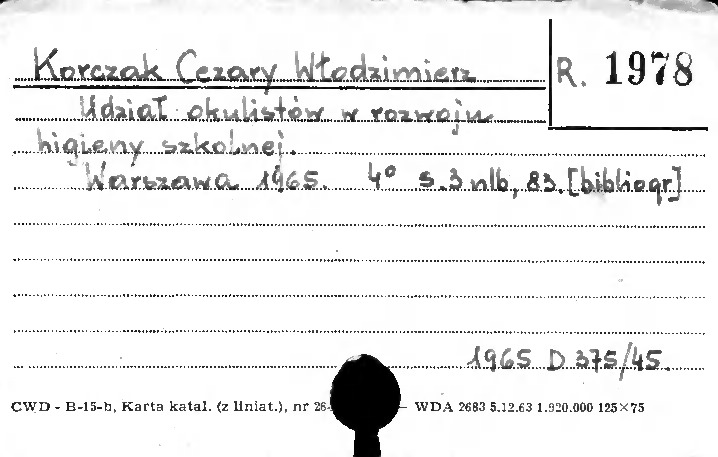 Korczak Cezary Włodzimierz
R. 1978
Udział okulistów w rozwoju
higieny szkolnej.
Warszawa 1965. 4° s. 3 nlb, 83. [bibliogr]
1965 D 375/45.
CWD - B-15-b, Karta katal. (z liniat.), nr 26- — WDA 2683 5.12.63 1.920.000 125×75